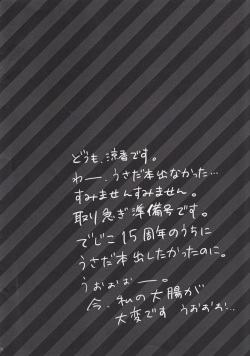 どうも、涼香です。
わー、うさだ本出なかった…
すみませんすみません。
取り急ぎ準備号です。
でじこ15周年のうちに
うさだ本出したかったのに。
うぉぉぉー。
今、私の大腸が
大変です うぉぉぉ!